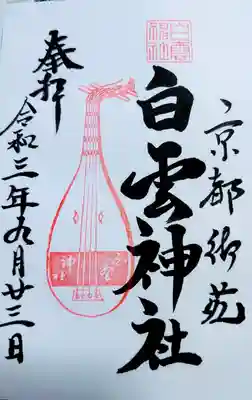 京都御苑
白雲神社
白雲神社
奉拝
白雲
神社
令和三年九月廿三日